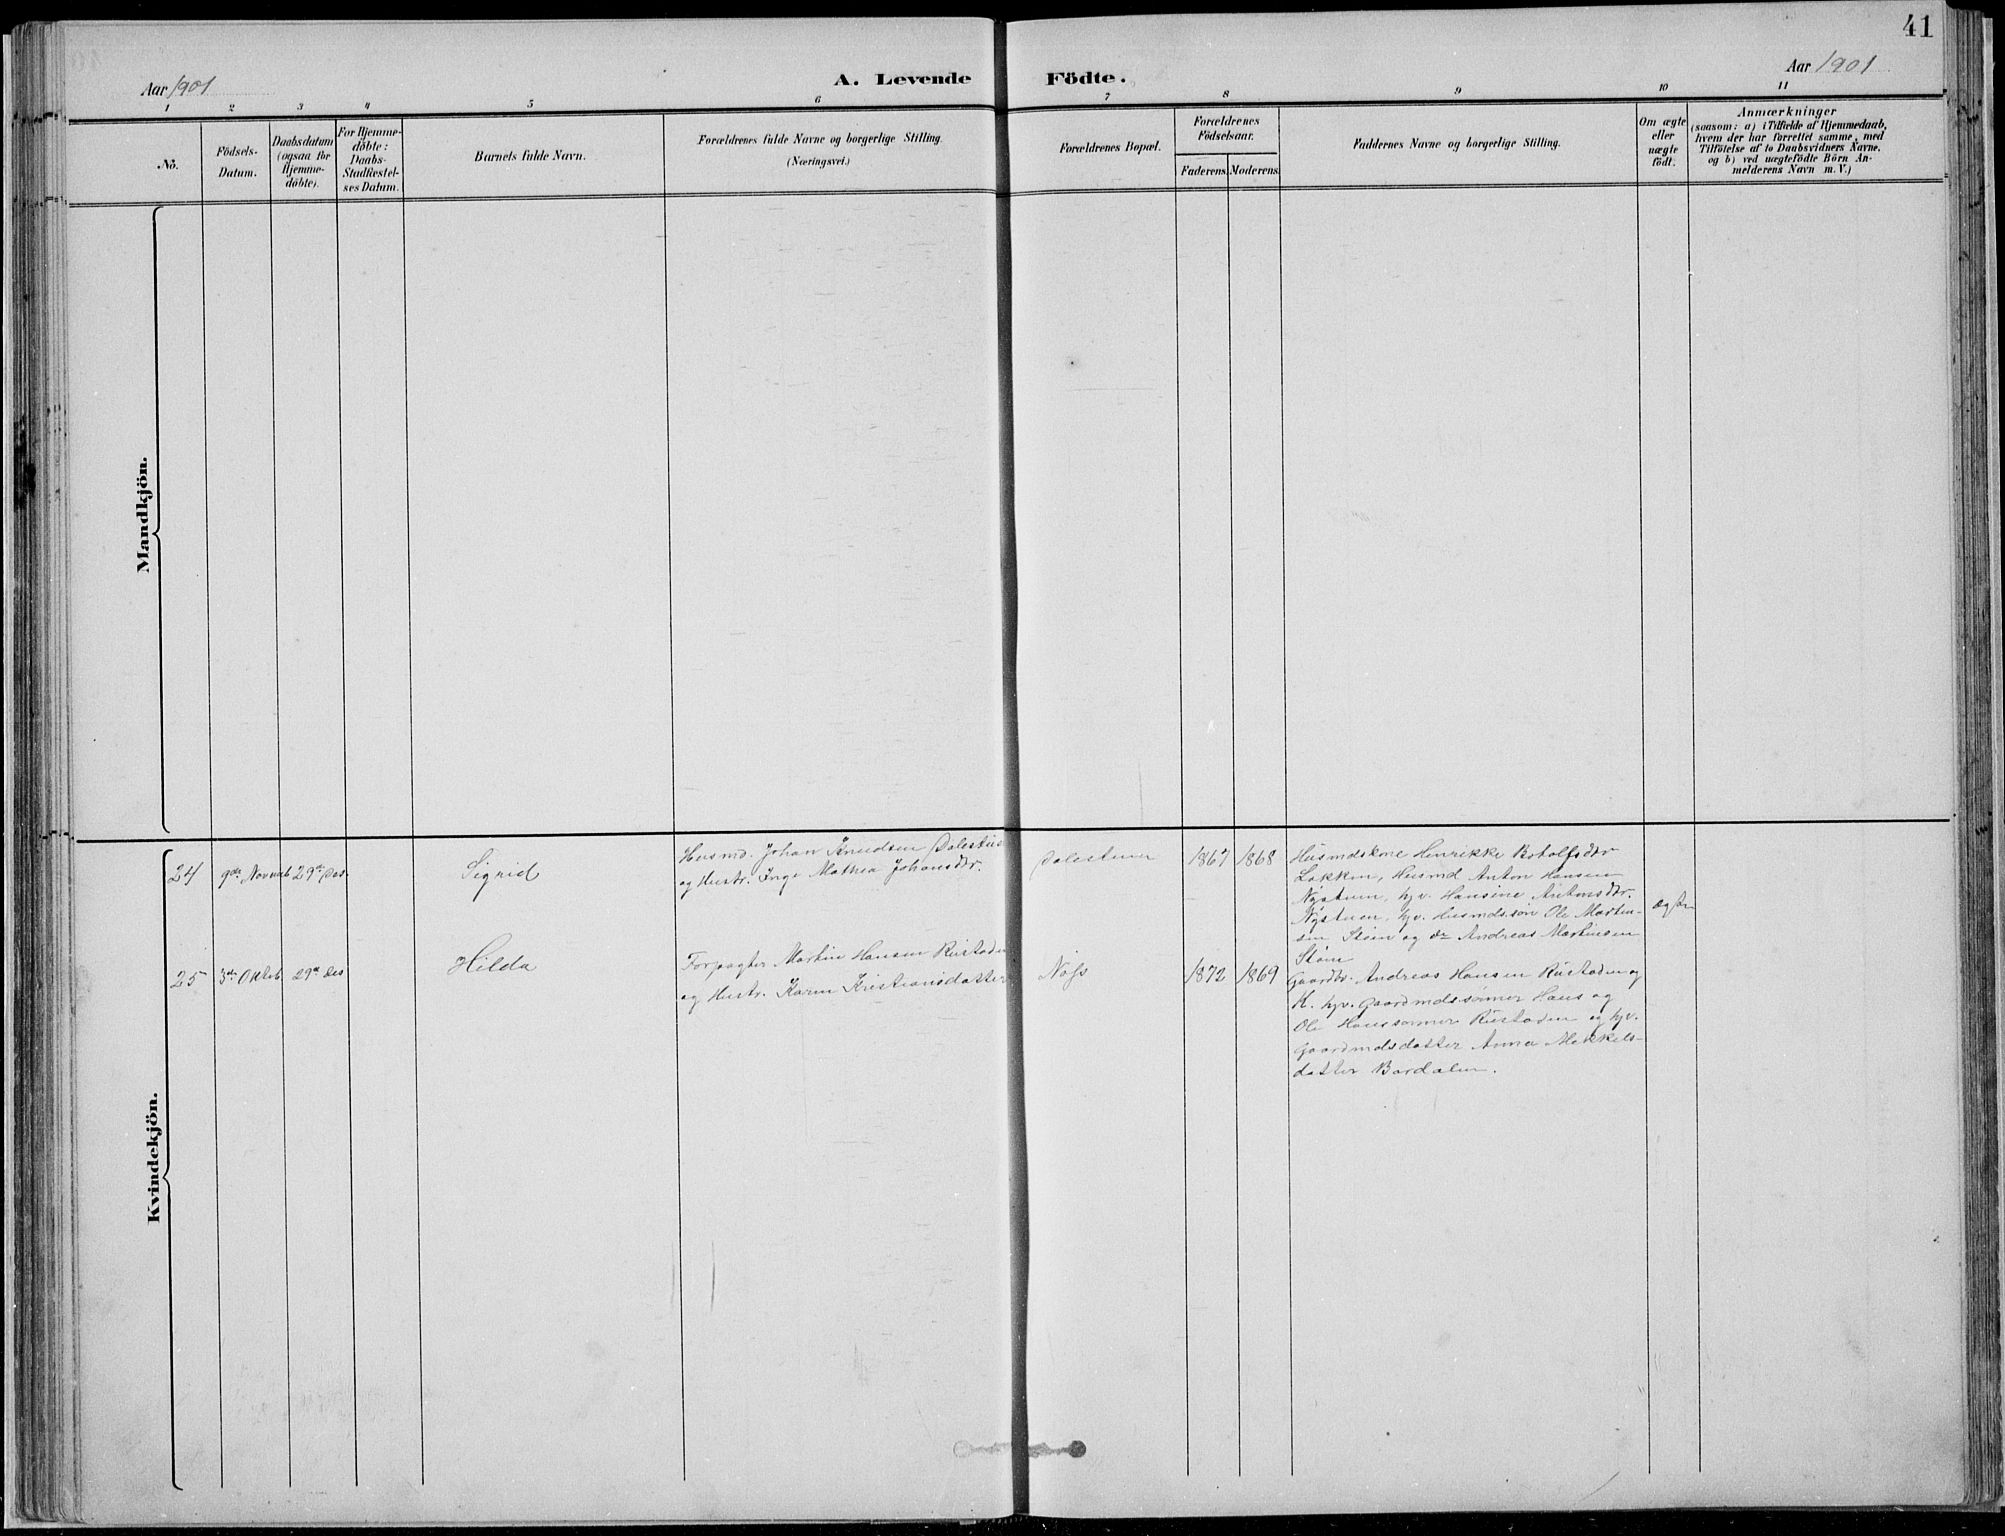 41
Aar 1901
A. Levende Födte.
Aar 1901
1 2 3 4 5 6 7 8 9 10 11
No.
Födsels-
Datum.
Daabsdatum
(ogsaa for
Hjemme-
döbte).
For Hjemme-
döbte:
Daabs-
Stadfæstel-
ses Datum.
Barnets fulde Navn.
Forældrenes fulde Navne og borgerlige Stilling.
(Næringsvei.)
Forældrenes Bopæl.
Forældrenes
Födselsaar.
Faderens. Moderens.
Faddernes Navne og borgerlige Stilling.
Om ægte
eller
uægte
födt.
Anmærkninger
(saasom: a) i Tilfælde af Hjemmedaab,
hvem der har forrettet samme, med
Tilföielse af to Daabsvidners Navne,
og b) ved uægtefödte Börn An-
melderens Navn m. V.)
Mandkjön.
Kvindekjön.
24
9de Novemb
29de Des.
Sigrid
Husmd. Johan Knudsen
og Hustr. Inge Mathea Johansdtr.
1867 1868
Husmdskone Henrikke Botolfsdtr
Løkken, Husmd Anton Hansen
Nystuen, hjv. Hansine Antonsdtr.
Nystuen, hjv. Husmdssøn Ole Martin-
sen Støen og do Andreas Martinsen
Støen
25
3die Oktob.
29de Des
Hilda
Forpagter Martin Hansen Rustaden
og Hustr. Karen Kristiansdatter
Nøss
1872 1869
Gaardbr. Andreas Hansen Rustaden og
K. hjv. Gaardmdssønner Hans og
Ole Hanssønner Rustaden og hjv.
Gaardmdsdatter Anna Mekkels-
datter Bardalen.